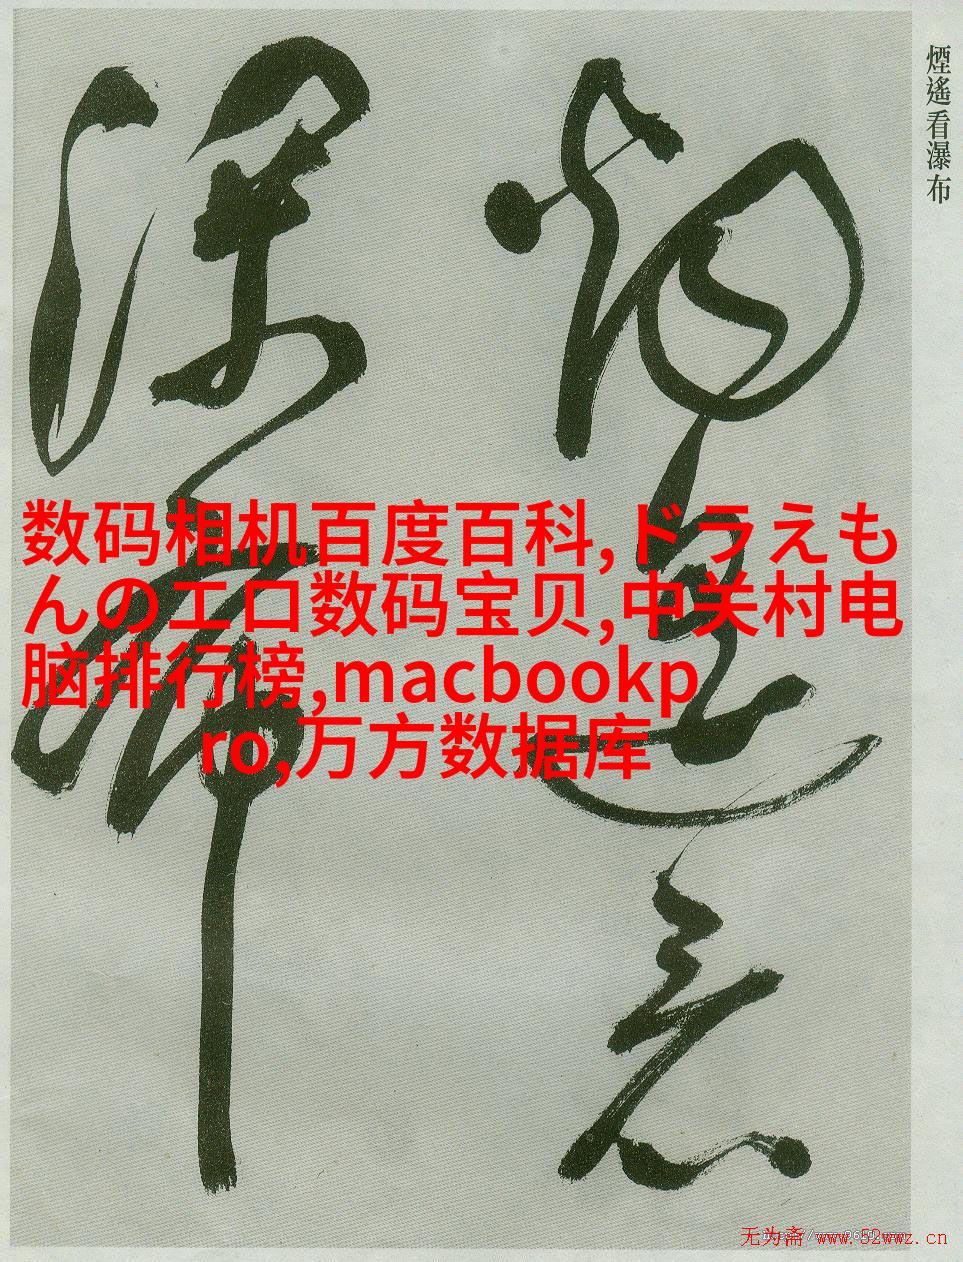 煙遙看瀑布
数码相机百度百科,ドラえも
んのエロ数码宝贝,中关村电
脑排行榜,macbookp
ro,万方数据库
无为斋 www.52wwz.cn